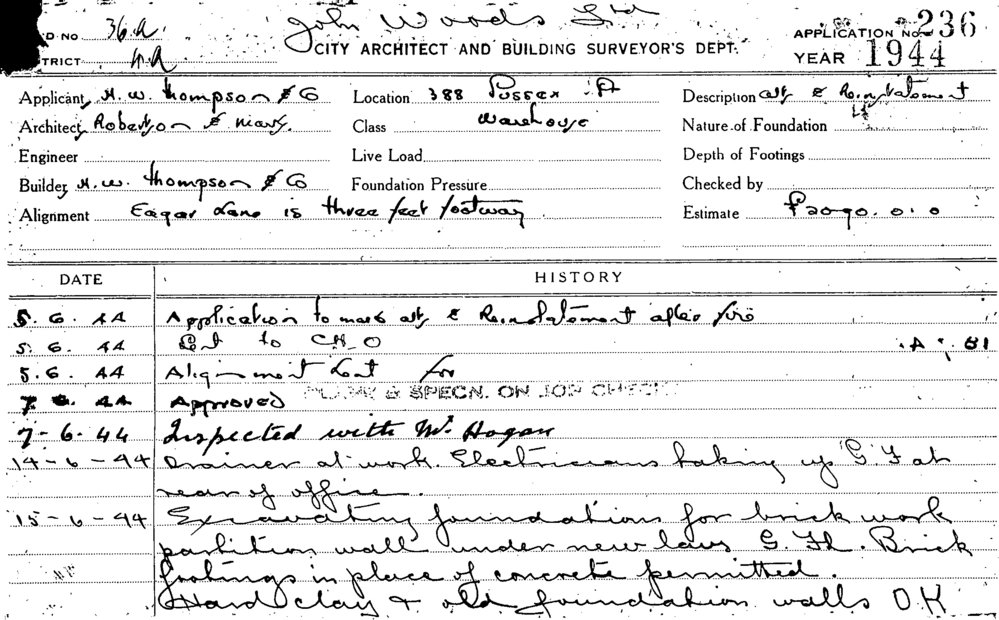 John Woods Ltd
D NO 36A
CITY ARCHITECT AND BUILDING SURVEYOR'S DEPT.
APPLICATION NO. 236
TRICT 4A
YEAR 1944
Applicant H. W. Thompson & Co Location 388 Sussex St Description alts & Reinstatement
Architect Robertson & Marks. Class Warehouse Nature of Foundation
Engineer Live Load Depth of Footings
Builder H. W. Thompson & Co Foundation Pressure Checked by
Alignment Eagar Lane is three feet footway Estimate £2090.0.0
DATE HISTORY
5.6.44 Application to make alts & Reinstatement after fire
5.6.44 to C.H.O A 81
5.6.44 Alignment for
7.6.44 Approved PLANS & SPECN. ON JOB CHECK
7-6-44 Inspected with Mr Hogan
14-6-44 Drainer at work. Electricians taking up G.F at
rear of office.
15-6-44 Excavating foundations for brick work
partition wall under new lavs G. Fl. Brick
footings in place of concrete permitted.
Hard clay & old foundation walls OK